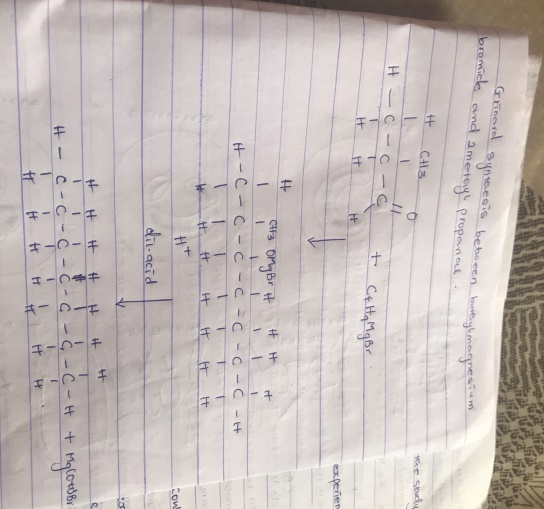 Grinard synthesis between butylmagnesium
bromide and 2methyl propanal.
H CH3 O
H — C — C — C + C4H9MgBr.
H H H
H CH3 OMgBr H H H H
H - C - C - C - C - C - C - C - H
H H H H H H H
H+
dil. acid
H H H H H H H
H - C - C - C - C - C - C - C - H + Mg(OH)Br
H H H H H H H.
the study
experien